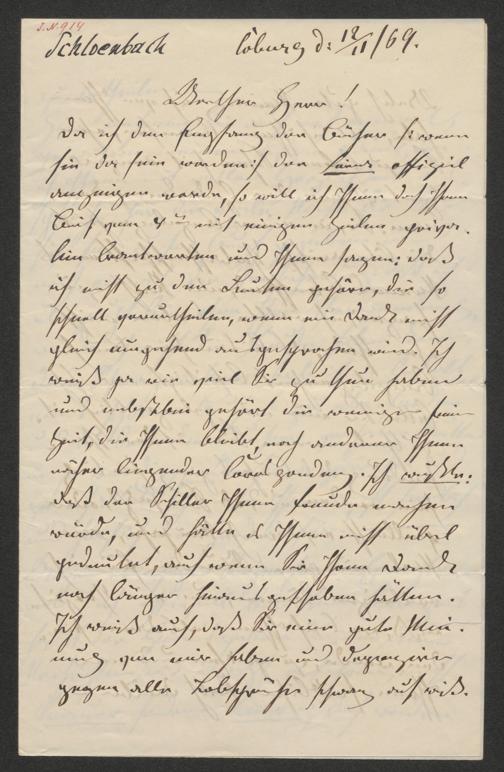 J.N. 914
Schloenbach
Coburg d: 12/11/69.
Werther Herr!
Da ich den Empfang der Bücher /: wenn
sie da sein werden :/ den offiziel
anzeigen werde, so will ich Ihnen doch Ihren
Brief vom mit einigen Zeilen priva-
tim beantworten und Ihnen sagen: daß
ich nicht zu den Leuten gehöre, die so
schnell verurtheilen, wenn ein Dank nicht
gleich umgehend ausgesprochen wird. Ich
weiß ja wie viel Sie zu thun haben
und gehört die wenige freie
Zeit, die Ihnen bleibt, noch anderer Ihnen
näher liegender Correspondenz. Ich wußte:
daß der Schiller Ihnen Freude machen
würde, und hätte es Ihnen nicht übel
gedeutet, auch wenn Sie Ihren Dank
noch länger hinausgeschoben hätten.
Ich weiß auch, daß Sie eine gute Mei-
nung von mir haben und
gegen alle Lobsprüche